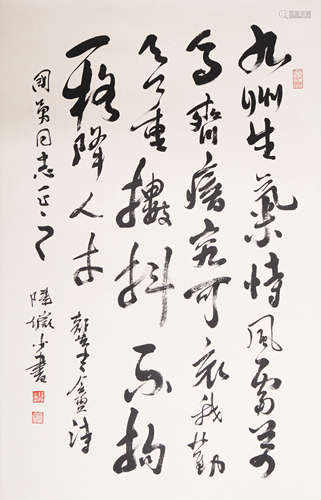 九洲生氣恃風雷萬
馬齊瘖究可哀我勸
天公重擻抖不拘
一格降人才
詩
國勇同志正之
陸儼少書